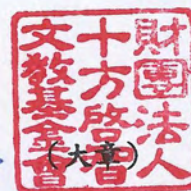 財團法人
十方啓智
文教基金會
(大章)